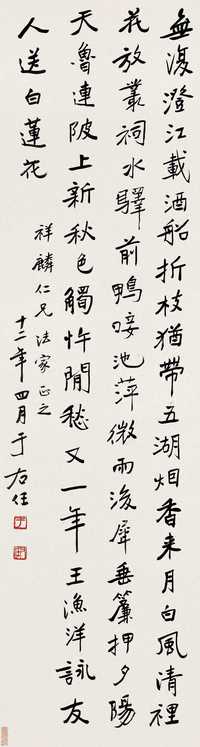 無復澄江載酒船折枝猶帶五湖烟香来月白風清裡
花放叢祠水驛前鴨唼池萍微雨後犀垂簾押夕陽
天魯連陂上新秋色觸忤閒愁又一年王漁洋詠友
人送白蓮花
祥麟仁兄法家正之
十二年四月于右任